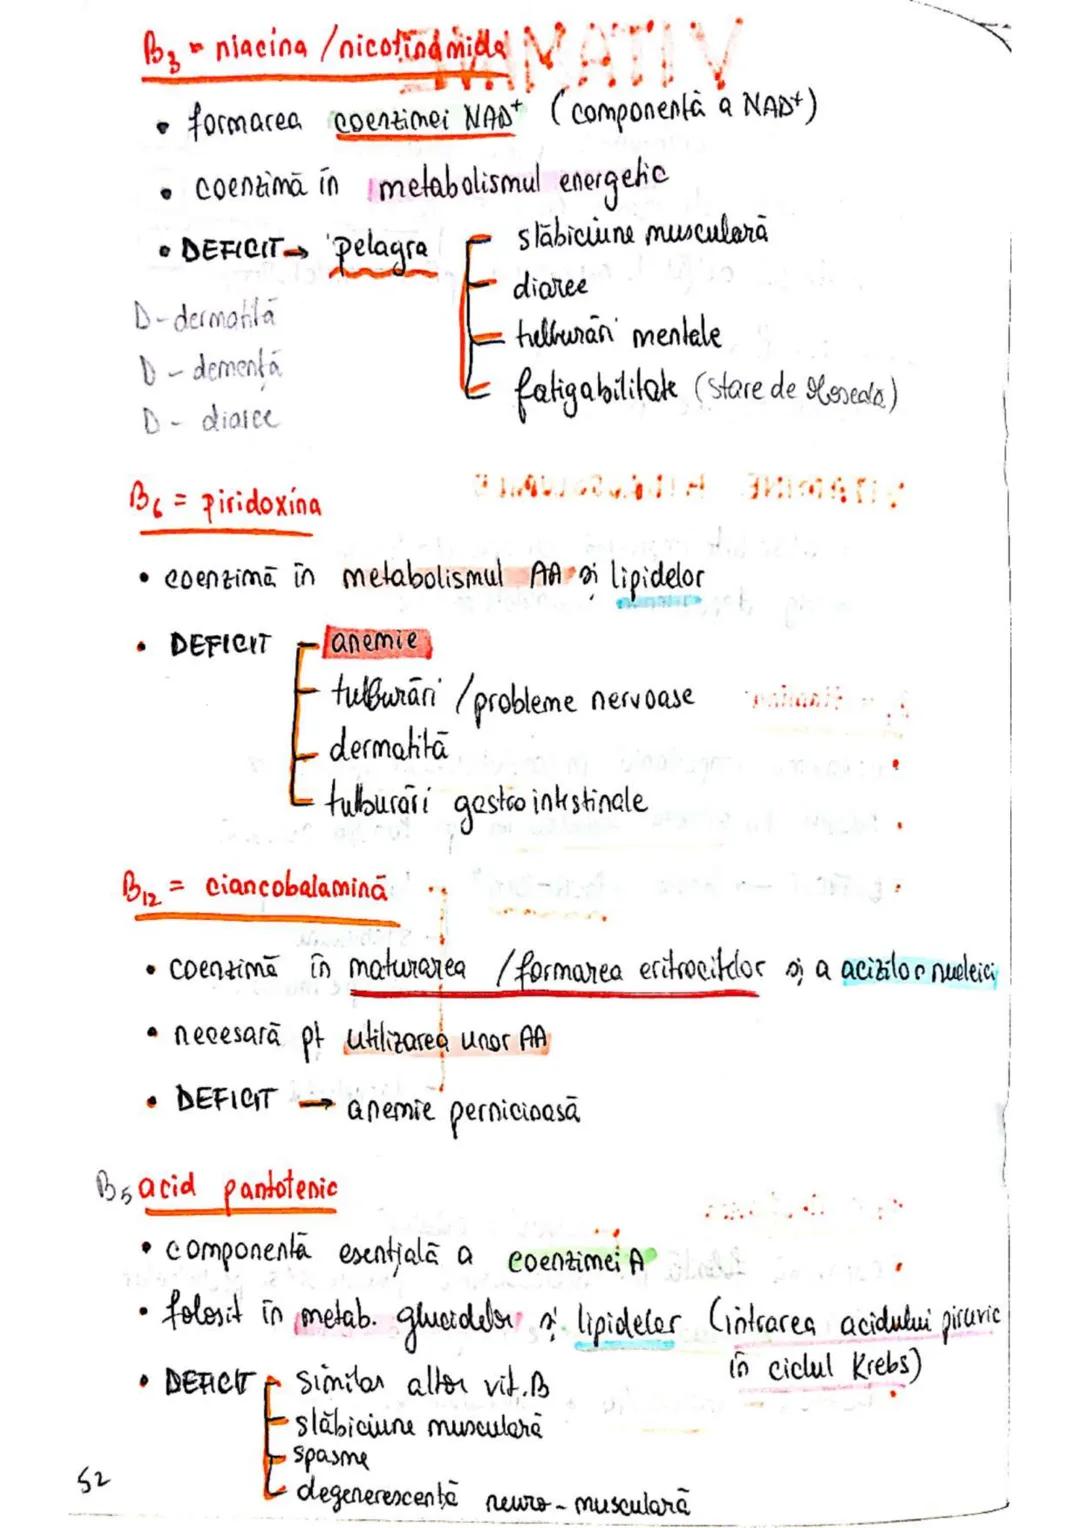 B3 = niacina / nicotinamida
• formarea coenzimei NAD+ (componentă a NAD+)
• coenzimă în metabolismul energetic
• DEFICIT → pelagra
slăbiciune musculară
diaree
tulburări mentale
fatigabilitate (stare de oboseală)
D - dermatită
D - demență
D - diaree
B6 = piridoxina
• coenzimă în metabolismul AA și lipidelor
• DEFICIT
anemie
tulburări / probleme nervoase
dermatită
tulburări gastrointestinale
B12 = ciancobalamină
• coenzimă în maturarea / formarea eritrocitelor și a acizilor nucleici
• necesară pt utilizarea unor AA
• DEFICIT → anemie pernicioasă
B5 acid pantotenic
• componentă esențială a coenzimei A
• folosit în metab. glucidelor și lipidelor (intrarea acidului piruvic
în ciclul Krebs)
• DEFICIT
similar altor vit. B
slăbiciune musculară
spasme
degenerescență neuro-musculară
52